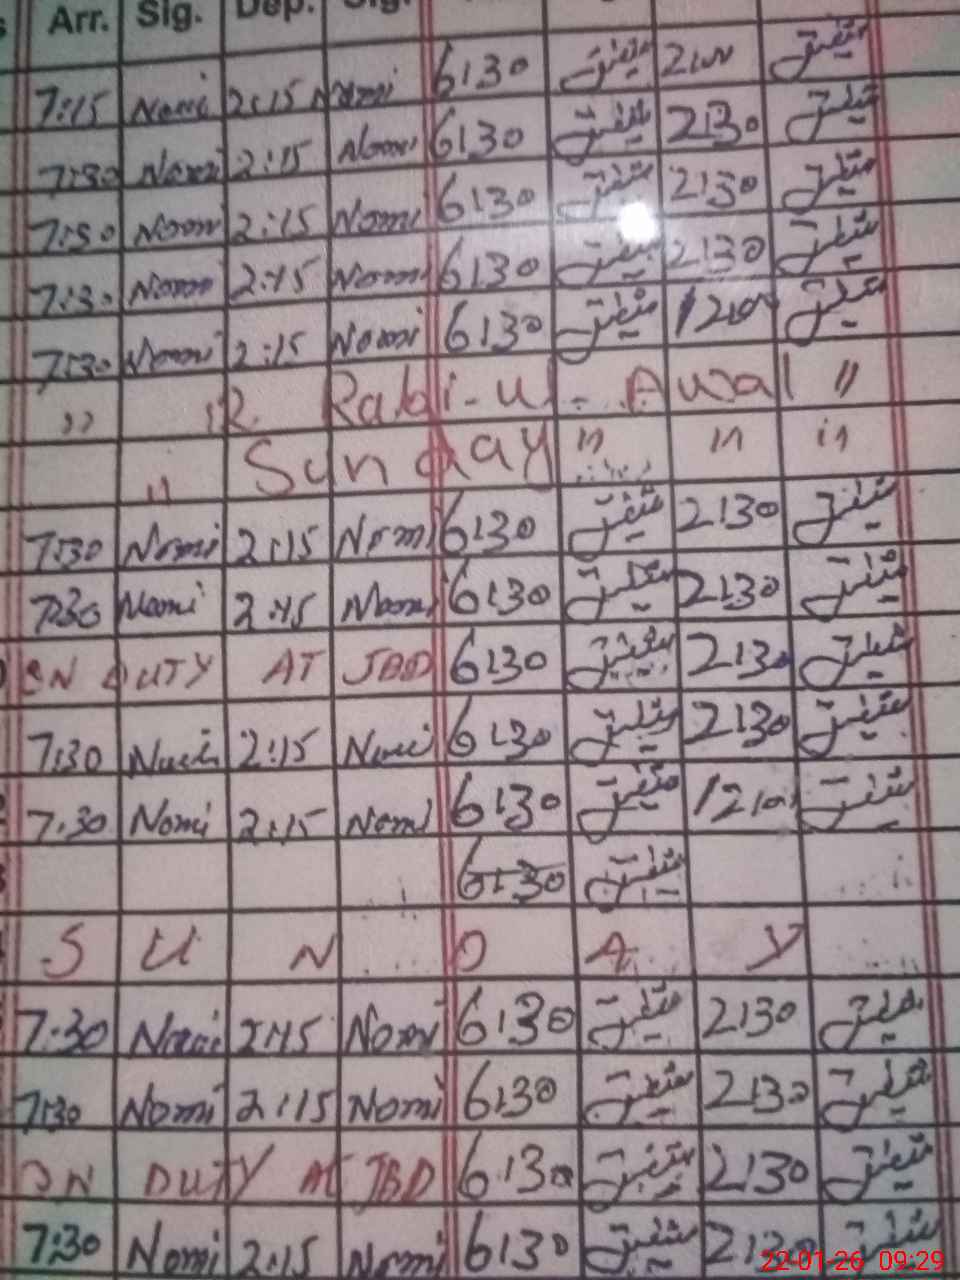 Arr. Sig. Dep. Sig.
7:15 Nomi 2:15 Nomi 6:30 شفیق 2:00 شفیق
7:30 Nomi 2:15 Nomi 6:30 شفیق 2:30 شفیق
7:30 Nomi 2:15 Nomi 6:30 شفیق 2:30 شفیق
7:30 Nomi 2:15 Nomi 6:30 شفیق 2:30 شفیق
7:30 Nomi 2:15 Nomi 6:30 شفیق 12:00 شفیق
" 12 Rabi-ul-Awal "
" Sunday " " "
7:30 Nomi 2:15 Nomi 6:30 شفیق 2:30 شفیق
7:30 Nomi 2:15 Nomi 6:30 شفیق 2:30 شفیق
ON DUTY AT JBD 6:30 شفیق 2:30 شفیق
7:30 Nomi 2:15 Nomi 6:30 شفیق 2:30 شفیق
7:30 Nomi 2:15 Nomi 6:30 شفیق 12:00 شفیق
6:30 شفیق
S U N D A Y
7:30 Nomi 2:15 Nomi 6:30 شفیق 2:30 شفیق
7:30 Nomi 2:15 Nomi 6:30 شفیق 2:30 شفیق
ON DUTY AT JBD 6:30 شفیق 2:30 شفیق
7:30 Nomi 2:15 Nomi 6:30 شفیق 2:30 شفیق
22-01-26 09:29